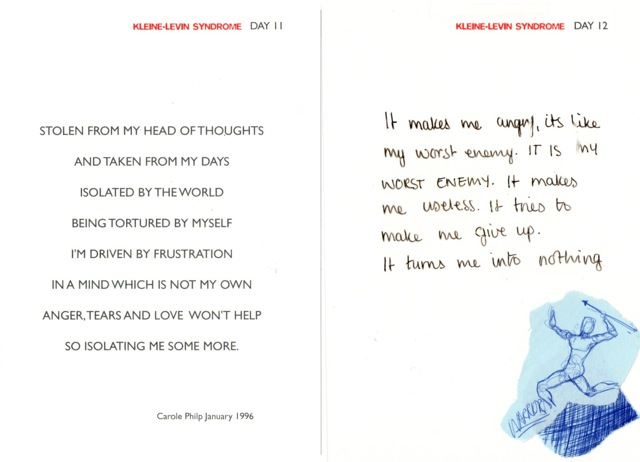 KLEINE-LEVIN SYNDROME DAY 11
STOLEN FROM MY HEAD OF THOUGHTS
AND TAKEN FROM MY DAYS
ISOLATED BY THE WORLD
BEING TORTURED BY MYSELF
I'M DRIVEN BY FRUSTRATION
IN A MIND WHICH IS NOT MY OWN
ANGER, TEARS AND LOVE WON'T HELP
SO ISOLATING ME SOME MORE.
Carole Philp January 1996
KLEINE-LEVIN SYNDROME DAY 12
It makes me angry, its like
my worst enemy. IT IS MY
WORST ENEMY. It makes
me useless. It tries to
make me give up.
It turns me into nothing